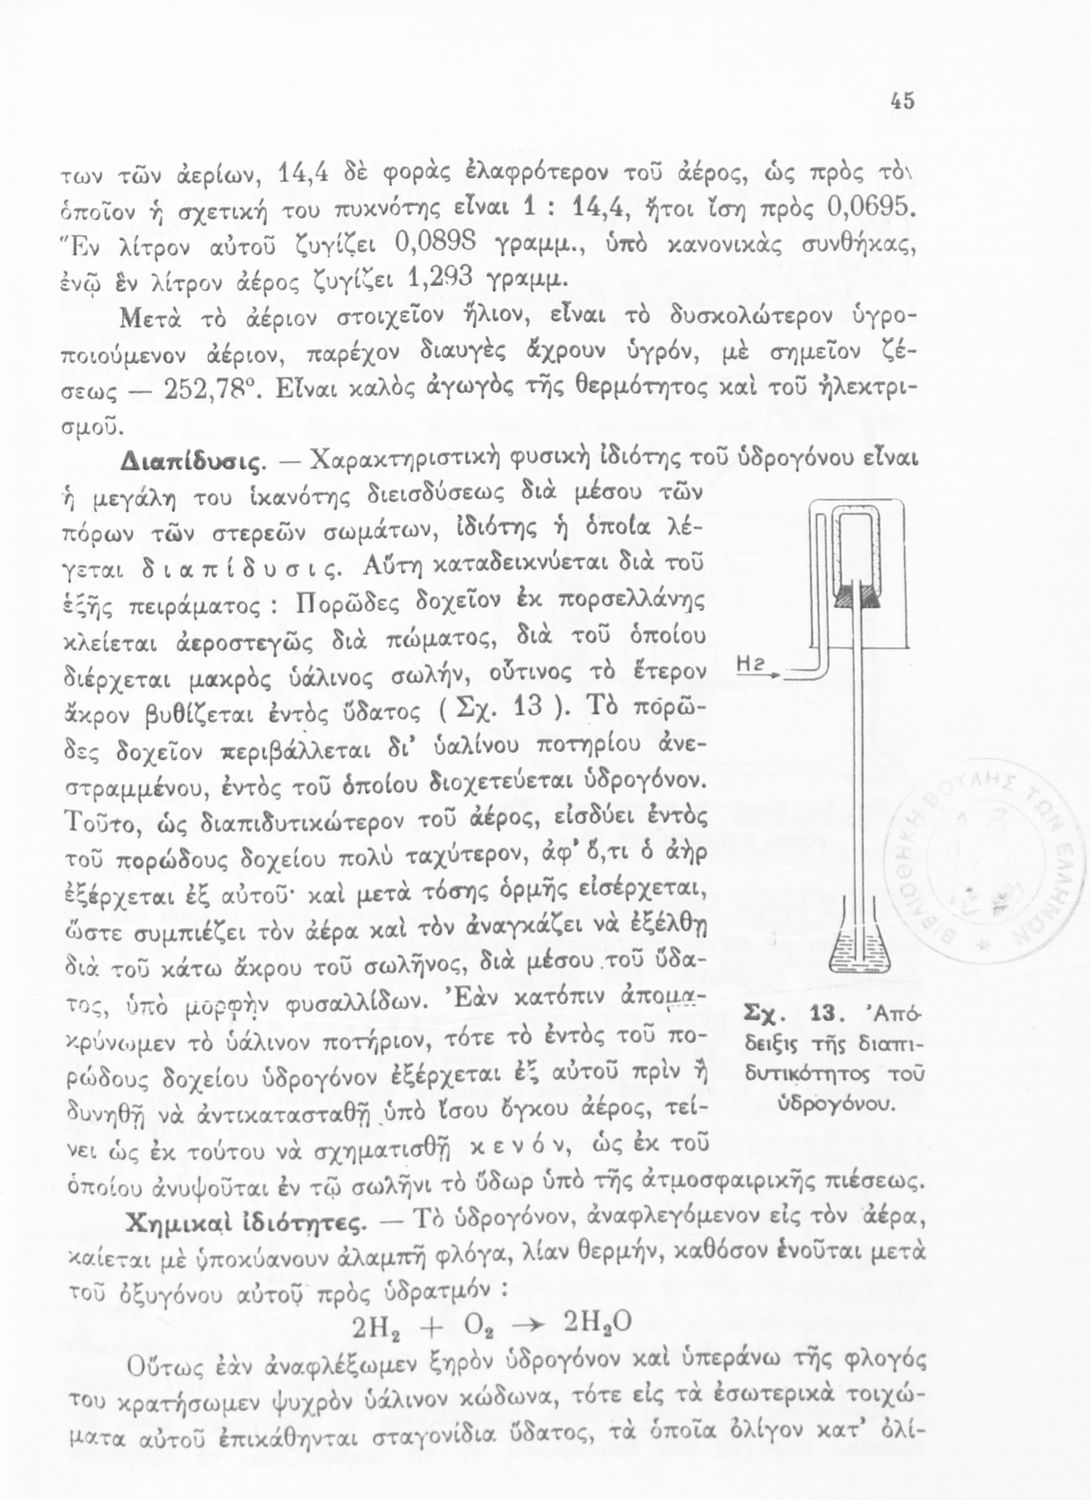 45
των τῶν ἀερίων, 14,4 δὲ φορὰς ἐλαφρότερον τοῦ ἀέρος, ὡς πρὸς τὸν
ὁποῖον ἡ σχετική του πυκνότης εἶναι 1 : 14,4, ἤτοι ἴση πρὸς 0,0695.
Ἓν λίτρον αὐτοῦ ζυγίζει 0,0898 γραμμ., ὑπὸ κανονικὰς συνθήκας,
ἐνῷ ἓν λίτρον ἀέρος ζυγίζει 1,293 γραμμ.
Μετὰ τὸ ἀέριον στοιχεῖον ἥλιον, εἶναι τὸ δυσκολώτερον ὑγρο-
ποιούμενον ἀέριον, παρέχον διαυγὲς ἄχρουν ὑγρόν, μὲ σημεῖον ζέ-
σεως — 252,78°. Εἶναι καλὸς ἀγωγὸς τῆς θερμότητος καὶ τοῦ ἠλεκτρι-
σμοῦ.
Διαπίδυσις. — Χαρακτηριστικὴ φυσικὴ ἰδιότης τοῦ ὑδρογόνου εἶναι
ἡ μεγάλη του ἱκανότης διεισδύσεως διὰ μέσου τῶν
πόρων τῶν στερεῶν σωμάτων, ἰδιότης ἡ ὁποία λέ-
γεται διαπίδυσις. Αὕτη καταδεικνύεται διὰ τοῦ
ἑξῆς πειράματος : Πορῶδες δοχεῖον ἐκ πορσελλάνης
κλείεται ἀεροστεγῶς διὰ πώματος, διὰ τοῦ ὁποίου
διέρχεται μακρὸς ὑάλινος σωλήν, οὗτινος τὸ ἕτερον
ἄκρον βυθίζεται ἐντὸς ὕδατος ( Σχ. 13 ). Τὸ πορῶ-
δες δοχεῖον περιβάλλεται δι' ὑαλίνου ποτηρίου ἀνε-
στραμμένου, ἐντὸς τοῦ ὁποίου διοχετεύεται ὑδρογόνον.
Τοῦτο, ὡς διαπιδυτικώτερον τοῦ ἀέρος, εἰσδύει ἐντὸς
τοῦ πορώδους δοχείου πολὺ ταχύτερον, ἀφ' ὅ,τι ὁ ἀὴρ
ἐξέρχεται ἐξ αὐτοῦ· καὶ μετὰ τόσης ὁρμῆς εἰσέρχεται,
ὥστε συμπιέζει τὸν ἀέρα καὶ τὸν ἀναγκάζει νὰ ἐξέλθῃ
διὰ τοῦ κάτω ἄκρου τοῦ σωλῆνος, διὰ μέσου τοῦ ὕδα-
τος, ὑπὸ μορφὴν φυσαλλίδων. Ἐὰν κατόπιν ἀπομα-
κρύνωμεν τὸ ὑάλινον ποτήριον, τότε τὸ ἐντὸς τοῦ πο-
ρώδους δοχείου ὑδρογόνον ἐξέρχεται ἐξ αὐτοῦ πρὶν ἢ
δυνηθῇ νὰ ἀντικατασταθῇ ὑπὸ ἴσου ὄγκου ἀέρος, τεί-
νει ὡς ἐκ τούτου νὰ σχηματισθῇ κενόν, ὡς ἐκ τοῦ
ὁποίου ἀνυψοῦται ἐν τῷ σωλῆνι τὸ ὕδωρ ὑπὸ τῆς ἀτμοσφαιρικῆς πιέσεως.
H2
Σχ. 13. Ἀπό-
δειξις τῆς διαπι-
δυτικότητος τοῦ
ὑδρογόνου.
ΒΙΒΛΙΟΘΗΚΗ ΒΟΥΛΗΣ ΤΩΝ ΕΛΛΗΝΩΝ
Χημικαὶ ἰδιότητες. — Τὸ ὑδρογόνον, ἀναφλεγόμενον εἰς τὸν ἀέρα,
καίεται μὲ ὑποκύανουν ἀλαμπῆ φλόγα, λίαν θερμήν, καθόσον ἑνοῦται μετὰ
τοῦ ὀξυγόνου αὐτοῦ πρὸς ὑδρατμόν :
2H₂ + O₂ → 2H₂O
Οὕτως ἐὰν ἀναφλέξωμεν ξηρὸν ὑδρογόνον καὶ ὑπεράνω τῆς φλογός
του κρατήσωμεν ψυχρὸν ὑάλινον κώδωνα, τότε εἰς τὰ ἐσωτερικὰ τοιχώ-
ματα αὐτοῦ ἐπικάθηνται σταγονίδια ὕδατος, τὰ ὁποῖα ὀλίγον κατ' ὀλί-